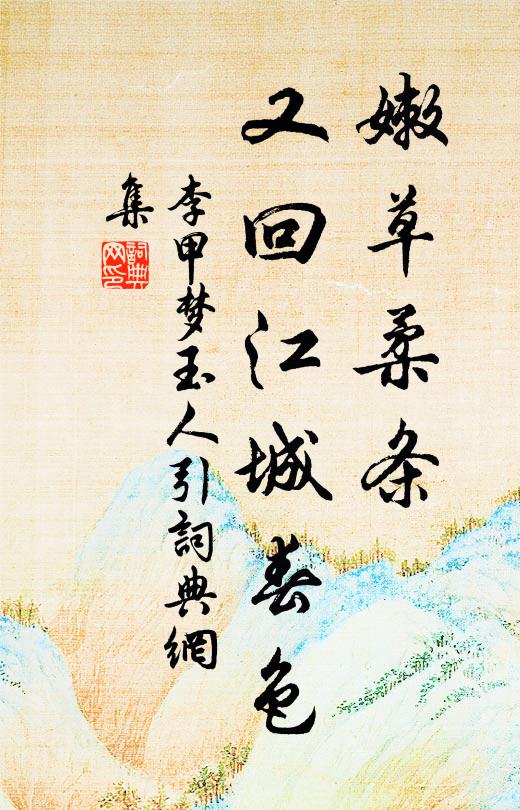 嫩草柔条
又回江城春色
李甲梦玉人引詞典網
集
詞典
网印